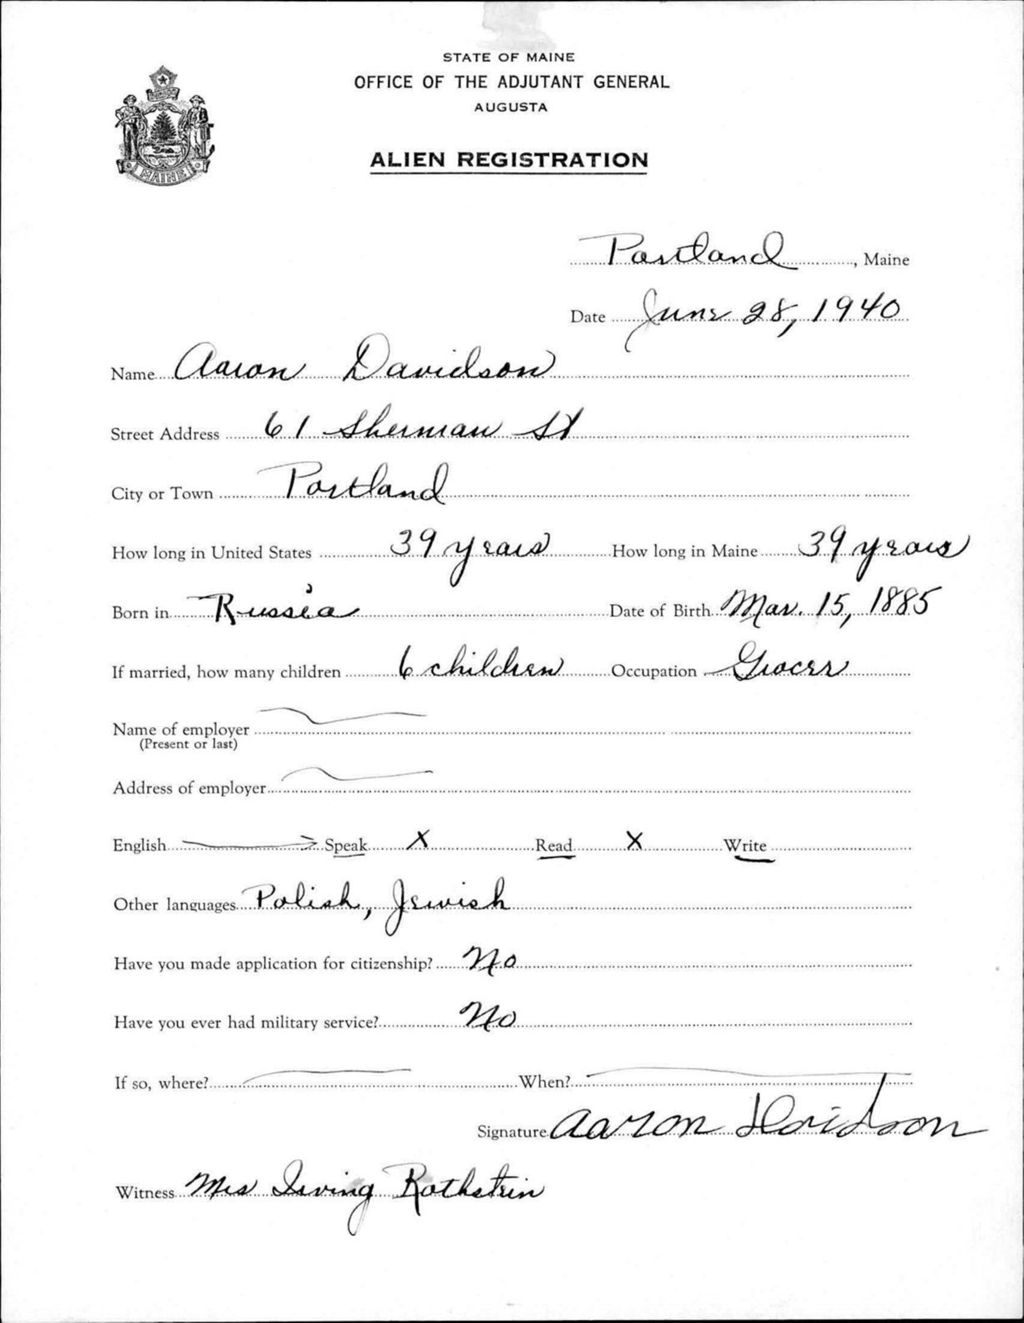 STATE OF MAINE
OFFICE OF THE ADJUTANT GENERAL
AUGUSTA
ALIEN REGISTRATION
MAINE
Portland, Maine
Date June 28, 1940
Name Aaron Davidson
Street Address 61 Sherman St
City or Town Portland
How long in United States 39 years How long in Maine 39 years
Born in Russia Date of Birth Mar. 15, 1885
If married, how many children 6 children Occupation Grocer
Name of employer
(Present or last)
Address of employer
English Speak X Read X Write
Other languages Polish, Jewish
Have you made application for citizenship? No
Have you ever had military service? No
If so, where? When?
Signature Aaron Davidson
Witness Mrs Irving Rothstein